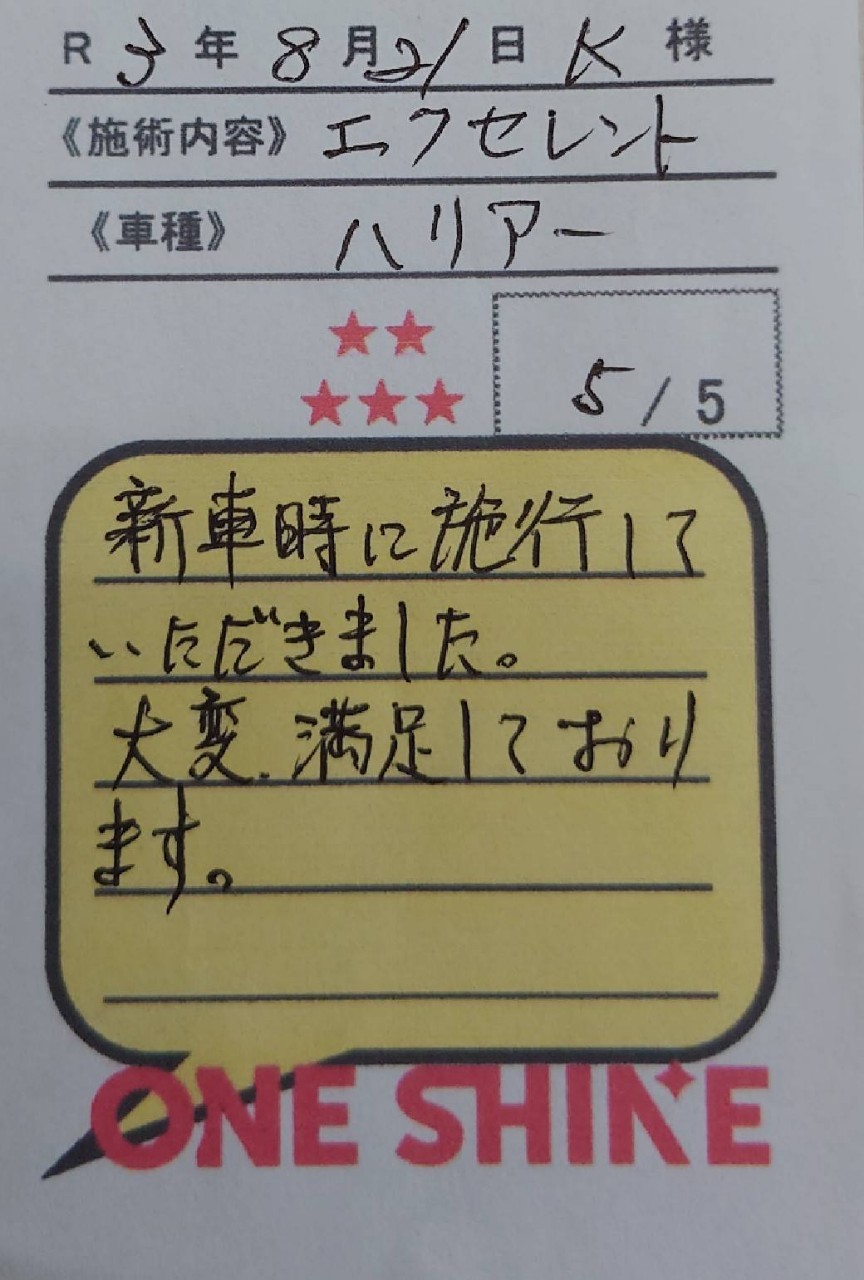 R 3 年 8 月 21 日 K 様
《施術内容》 エクセレント
《車種》 ハリアー
★★
★★★
5 / 5
新車時に施行して
いただきました。
大変、満足しており
ます。
ONE SHINE